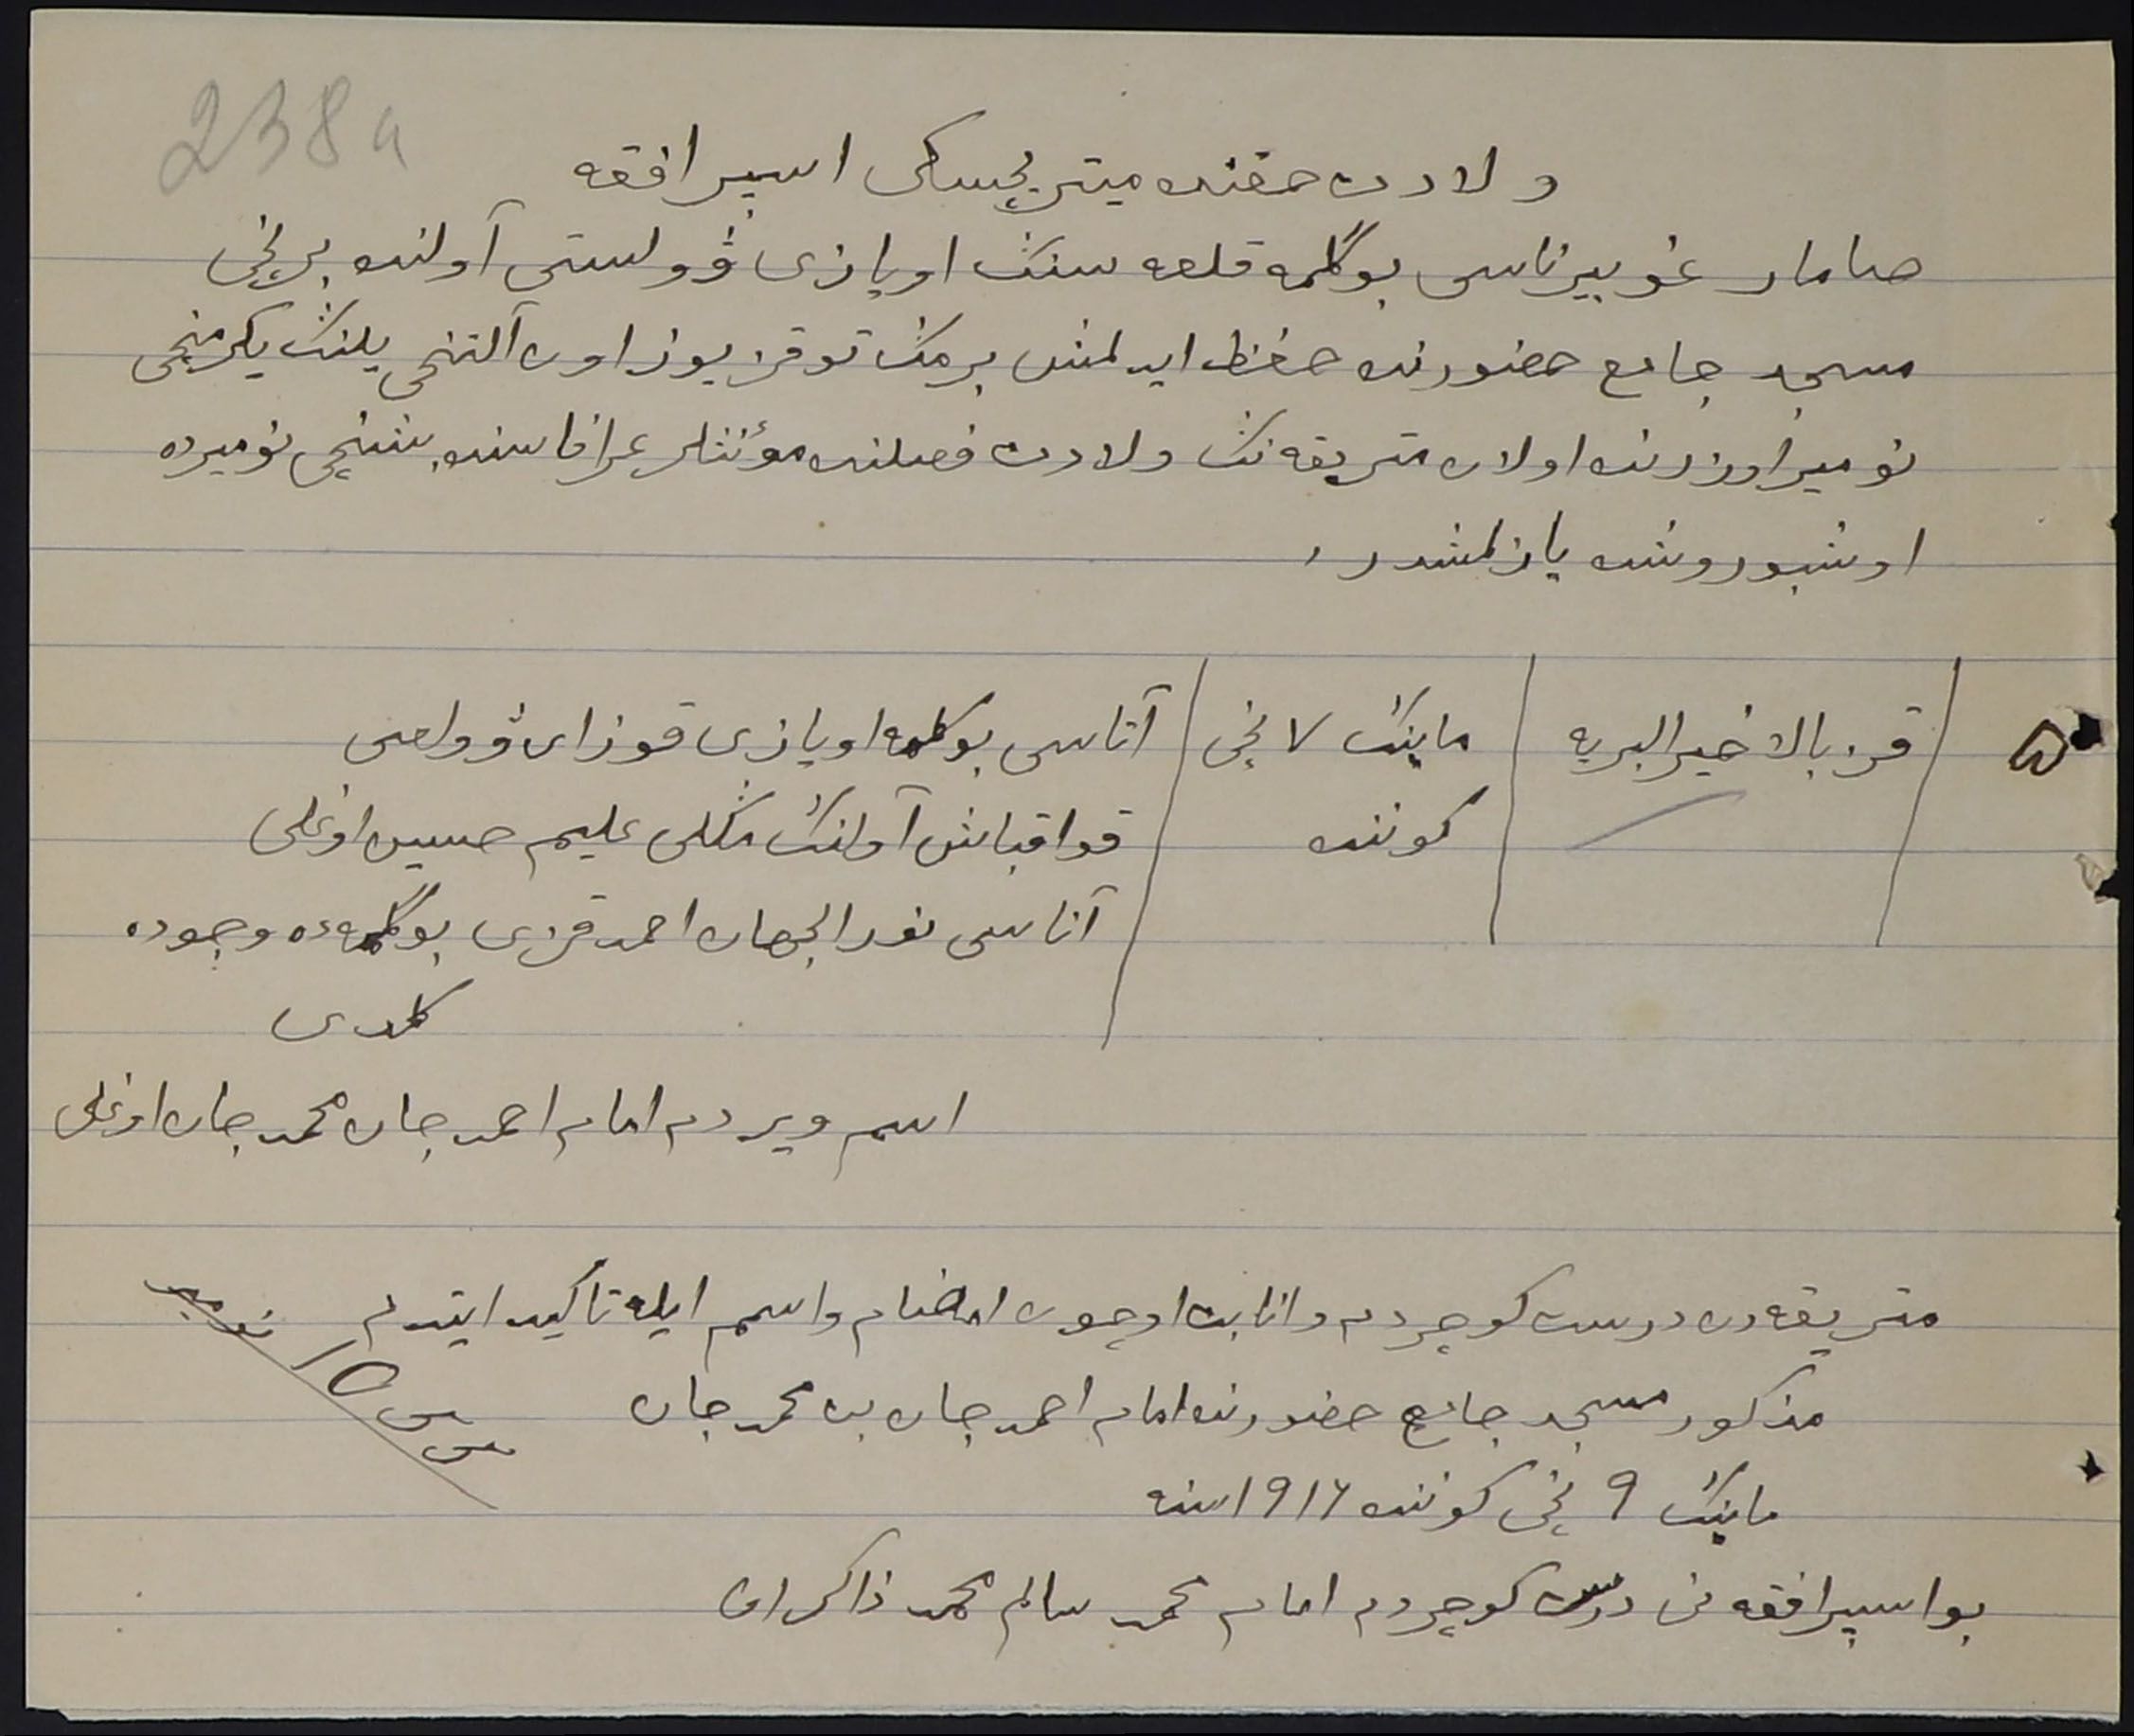 238a
ولادت حقنده میتریچسکی اسپرافقه
صامار غوبیرناسی بوگلمه قلعه سنڭ اویازی ڤولستی آولنده برنچی
مسجد جامع حضورنده حفظ ایدلمش برمڭ توقز یوز اون آلتنچی یلنڭ یگرمنچی
نومیر اوزرنده اولان متریقه نڭ ولادت فصلنده مؤنثلر غرافاسنده بشنچی نومیرده
اوشبو روشده یازلمشدر ،
۵ قز بالا خیر البریه ماینڭ ٧ نچی آتاسی بوگلمه اویازی قوزای ڤولصی
کوننده قواقباش آولنڭ علیم حسین اوغلی
آناسی نور الجهان احمد قزی بوگلمه ده وجوده
کلدی
اسم ویردم امام احمد جان محمد جان اوغلی
متریقه دن درست کوچردم و انابت اوچون امضام و اسمم ایله تاکید ایتدم
مذکور مسجد جامع حضورنده امام احمد جان بن محمد جان
ماینڭ ٩ نچی کوننده ١٩١٦ سنه
بو اسپرافقه نی درست کوچردم امام محمد سالم محمد ذاکر اف